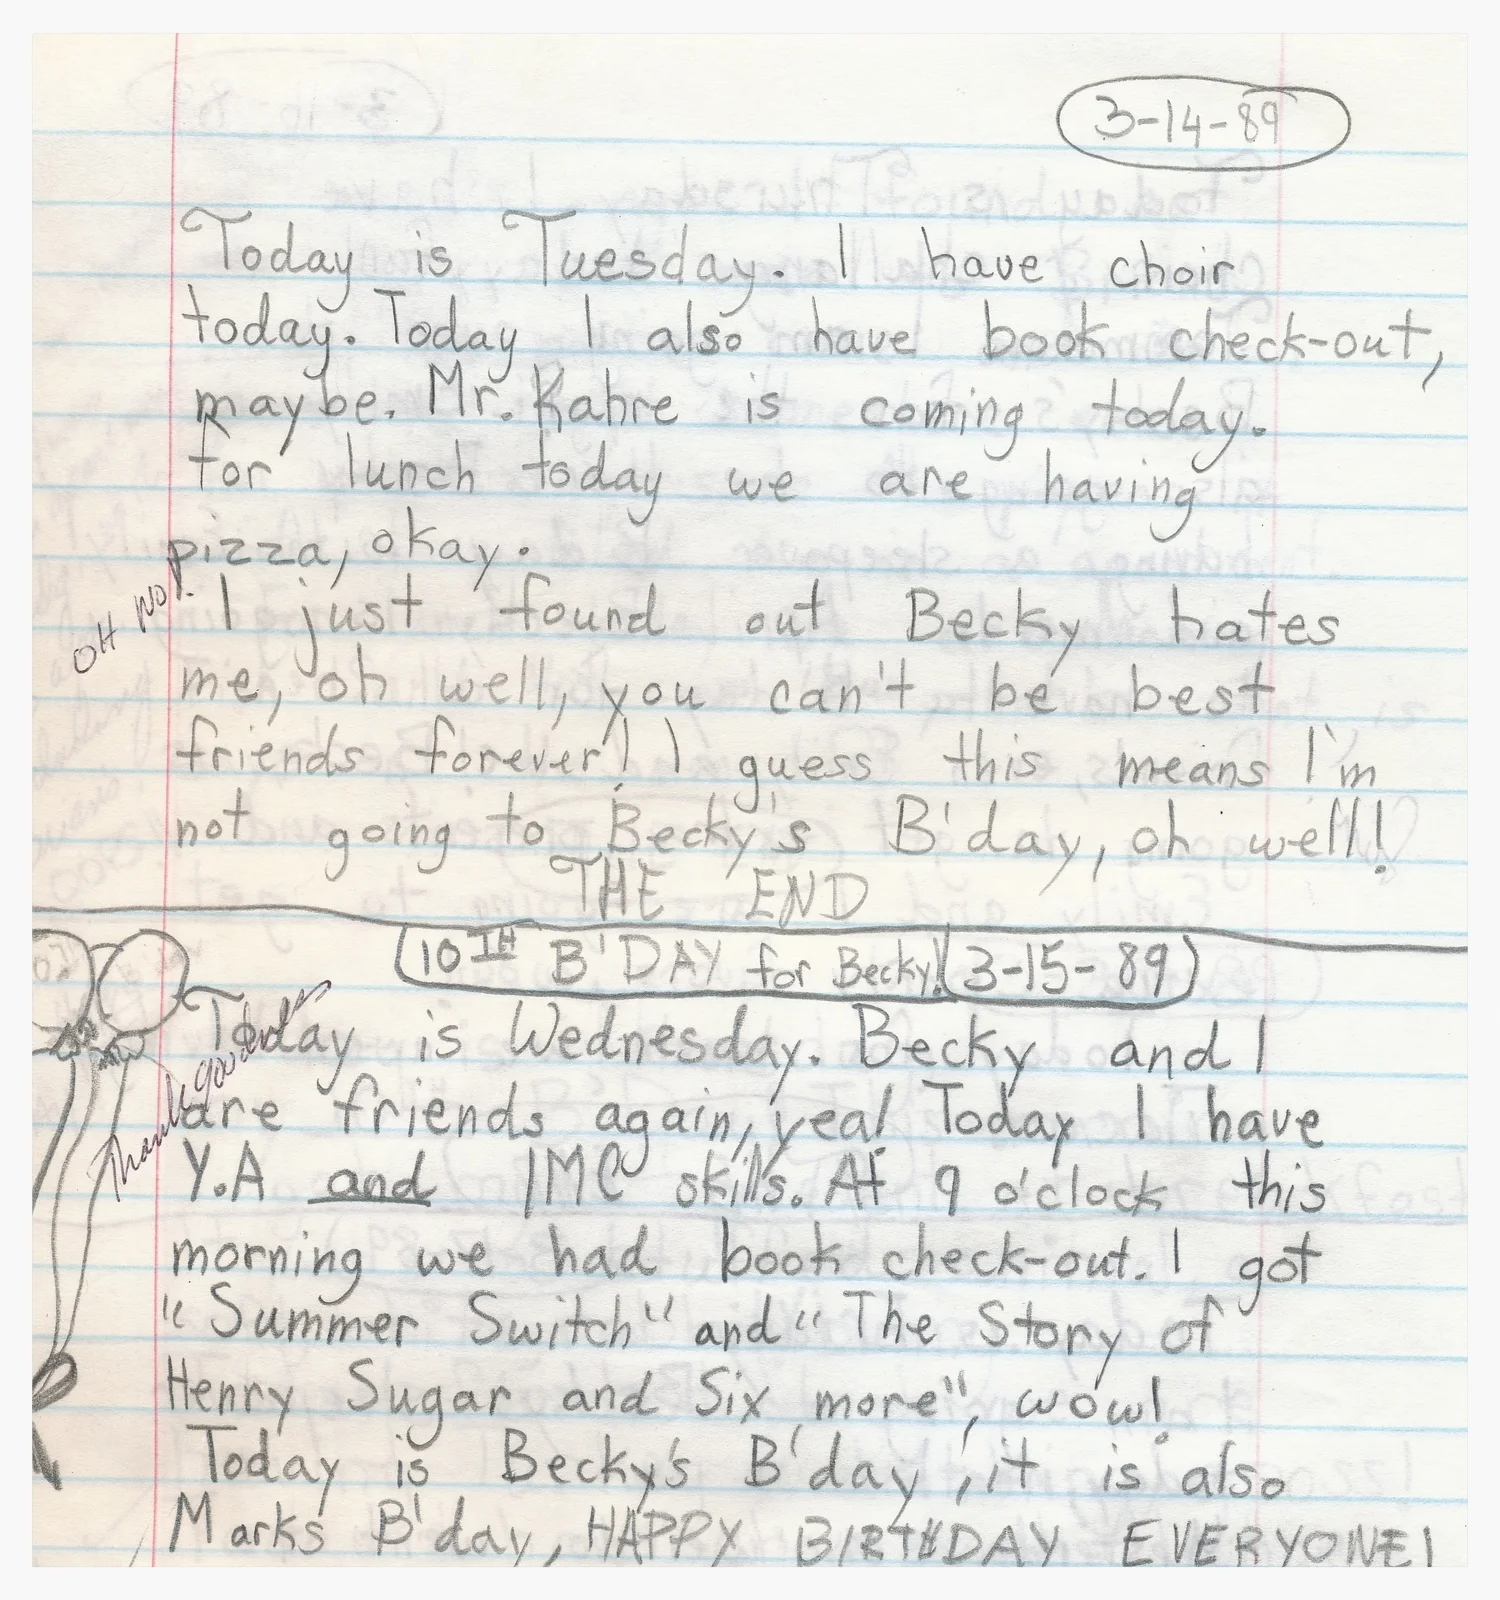 3-14-89
Today is Tuesday. I have choir
today. Today I also have book check-out,
maybe. Mr. Kahre is coming today.
For lunch today we are having
pizza, okay.
OH NO!
I just found out Becky hates
me, oh well, you can't be best
friends forever! I guess this means I'm
not going to Becky's B'day, oh well!
THE END
10TH B'DAY for Becky! 3-15-89
Today is Wednesday. Becky and I
Thank goodness
are friends again, yea! Today I have
Y.A and IMC skills. At 9 o'clock this
morning we had book check-out. I got
"Summer Switch" and "The Story of
Henry Sugar and Six more", wow!
Today is Becky's B'day, it is also
Marks B'day, HAPPY BIRTHDAY EVERYONE!